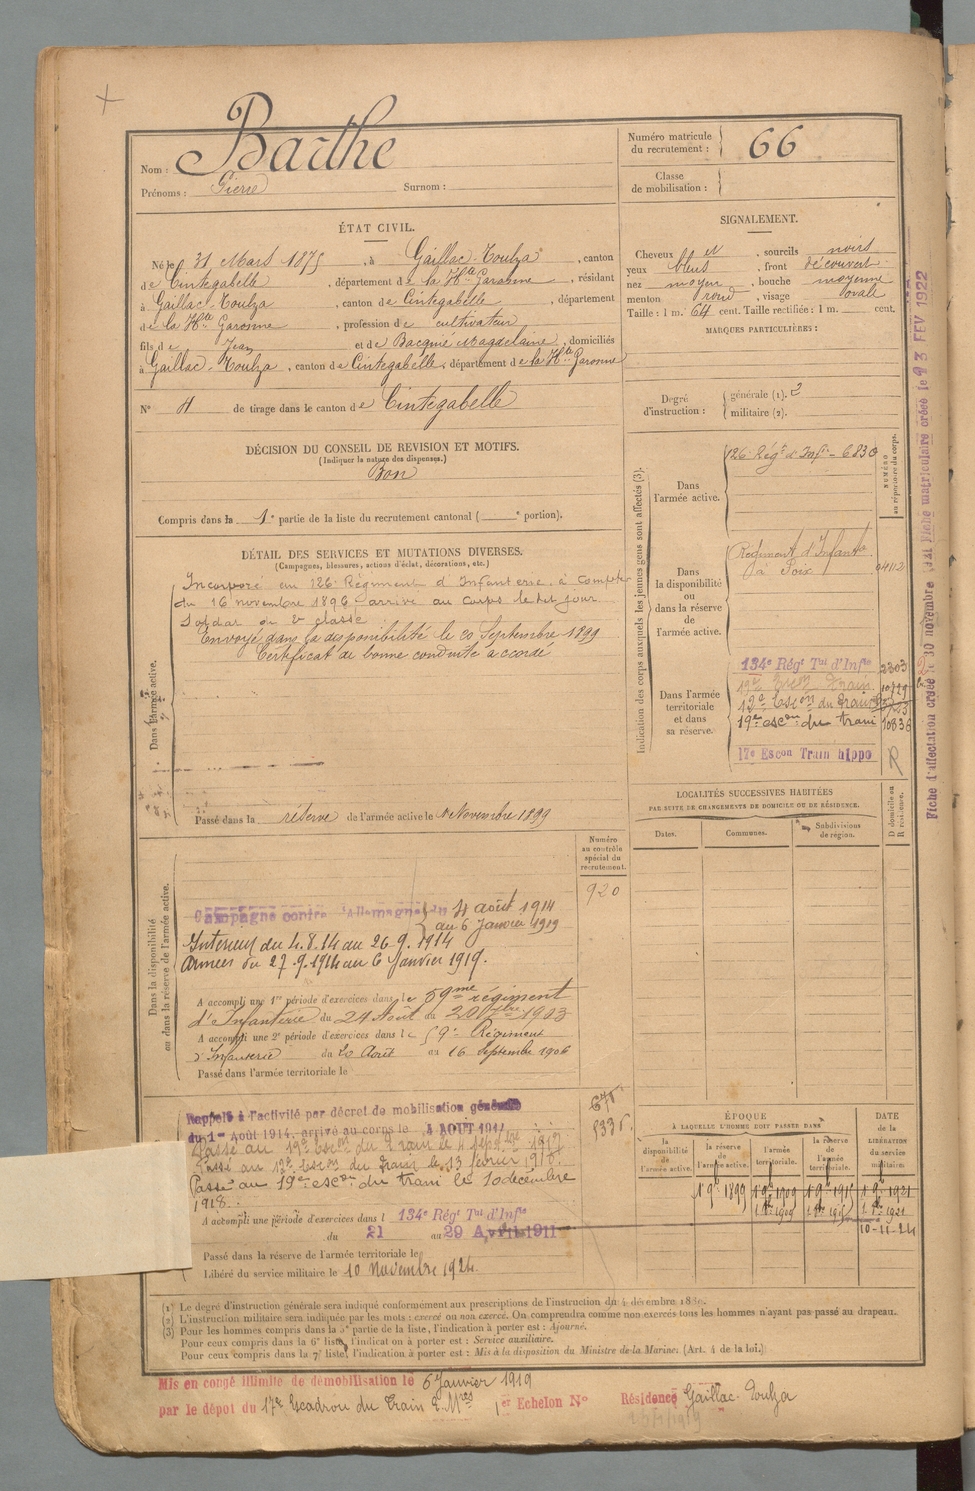 Nom : Barthe
Prénoms : Pierre Surnom :
Numéro matricule du recrutement : 66
Classe de mobilisation :
ÉTAT CIVIL.
Né le 31 Mars 1875, à Gaillac-Toulza, canton
de Cintegabelle, département de la Hte Garonne, résidant
à Gaillac-Toulza, canton de Cintegabelle, département
de la Hte Garonne, profession de cultivateur
fils de Jean et de Bacque Magdelaine, domiciliés
à Gaillac-Toulza, canton de Cintegabelle, département de la Hte Garonne
N° 4 de tirage dans le canton de Cintegabelle
SIGNALEMENT.
Cheveux et, sourcils noirs
yeux bleus, front découvert
nez moyen, bouche moyenne
menton rond, visage ovale
Taille : 1 m. 64 cent. Taille rectifiée : 1 m. cent.
MARQUES PARTICULIÈRES :
Degré d'instruction :
générale (1). 2
militaire (2).
DÉCISION DU CONSEIL DE REVISION ET MOTIFS.
(Indiquer la nature des dispenses.)
Bon
Compris dans la 1e partie de la liste du recrutement cantonal ( e portion).
Indication des corps auxquels les jeunes gens sont affectés (3).
NUMÉRO au répertoire du corps.
Dans l'armée active.
126e Régt d'Infie - 6830
Dans la disponibilité ou dans la réserve de l'armée active.
Régiment d'Infantie
à Foix
Dans l'armée territoriale et dans sa réserve.
134e Régt Tal d'Infie 2303
19e Escon Train
12e Escon du Train
19e escon du train 10838
17e Escon Train hippo R
DÉTAIL DES SERVICES ET MUTATIONS DIVERSES.
(Campagnes, blessures, actions d'éclat, décorations, etc.)
Dans l'armée active.
Incorporé au 126e Régiment d'Infanterie à compter
du 16 novembre 1896 arrivé au corps le dit jour
Soldat de 2e classe
Envoyé dans la disponibilité le 20 Septembre 1899
Certificat de bonne conduite accordé
Passé dans la réserve de l'armée active le 1 Novembre 1899
LOCALITÉS SUCCESSIVES HABITÉES
PAR SUITE DE CHANGEMENTS DE DOMICILE OU DE RÉSIDENCE.
Dates. Communes. Subdivisions de région. D domicile ou R résidence.
Numéro au contrôle spécial du recrutement.
920
Dans la disponibilité ou dans la réserve de l'armée active.
Campagne contre l'Allemagne du 4 août 1914
au 6 Janvier 1919
Intérieur du 4.8.14 au 26.9.1914
Armées du 27.9.1914 au 6 Janvier 1919.
A accompli une 1re période d'exercices dans le 59me régiment
d'Infanterie du 24 Août au 20 7bre 1903
A accompli une 2e période d'exercices dans le 59e Régiment
d'Infanterie du 20 Août au 16 Septembre 1906
Passé dans l'armée territoriale le
Rappelé à l'activité par décret de mobilisation générale
du 1er Août 1914, arrivé au corps le 4 AOUT 1914
Passé au 19e Escon du Train le 4 septbre 1917
Passé au 12e Escon du Train le 13 février 1918.
Passé au 19e escon du train le 10 décembre
1918.
A accompli une période d'exercices dans l 134e Régt Tal d'Infie
du 21 au 29 Avril 1911
Passé dans la réserve de l'armée territoriale le
Libéré du service militaire le 10 Novembre 1924.
ÉPOQUE
A LAQUELLE L'HOMME DOIT PASSER DANS
la disponibilité de l'armée active. la réserve de l'armée active. l'armée territoriale. la réserve de l'armée territoriale.
DATE de la LIBÉRATION du service militaire.
1er 9bre 1899 1er 9bre 1909 1er 9bre 1915 1er 9bre 1921
10-11-24
(1) Le degré d'instruction générale sera indiqué conformément aux prescriptions de l'instruction du 4 décembre 1889.
(2) L'instruction militaire sera indiquée par les mots : exercé ou non exercé. On comprendra comme non exercés tous les hommes n'ayant pas passé au drapeau.
(3) Pour les hommes compris dans la 5e partie de la liste, l'indication à porter est : Ajourné.
Pour ceux compris dans la 6e liste, l'indication à porter est : Service auxiliaire.
Pour ceux compris dans la 7e liste, l'indication à porter est : Mis à la disposition du Ministre de la Marine. (Art. 4 de la loi.)
Mis en congé illimité de démobilisation le 6 Janvier 1919
par le dépôt du 17e Escadron du Train E.Mres 1er Echelon N° Résidence Gaillac-Toulza
Fiche d'affectation créée le 30 novembre 1921 Fiche matriculaire créée le 23 FEV 1922